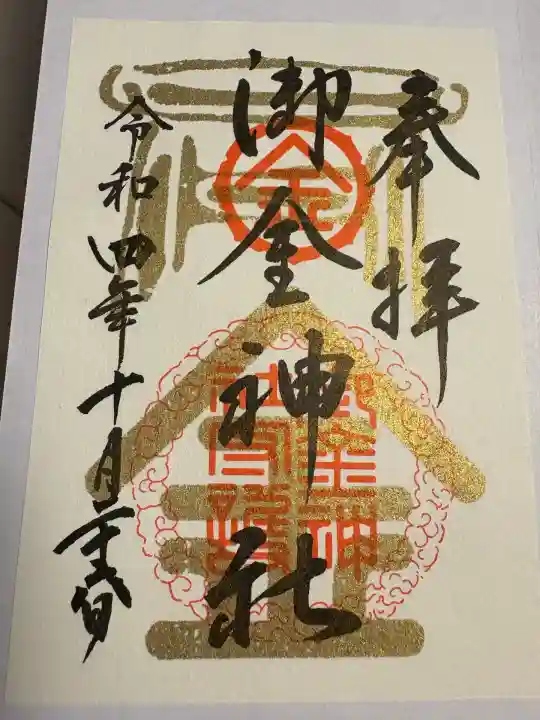 奉拝
御金神社
令和四年十月二十六日
金
御金神社